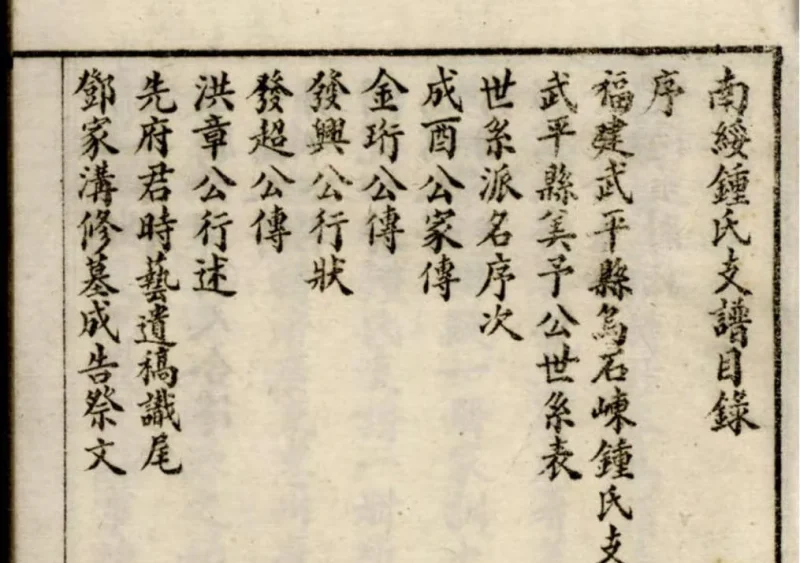 南綏鍾氏支譜目錄
序
福建武平縣烏石崠鍾氏支
武平縣美予公世系表
世系派名序次
成酉公家傳
金珩公傳
發興公行狀
發超公傳
洪章公行述
先府君時藝遺稿識尾
鄧家溝修墓成告祭文